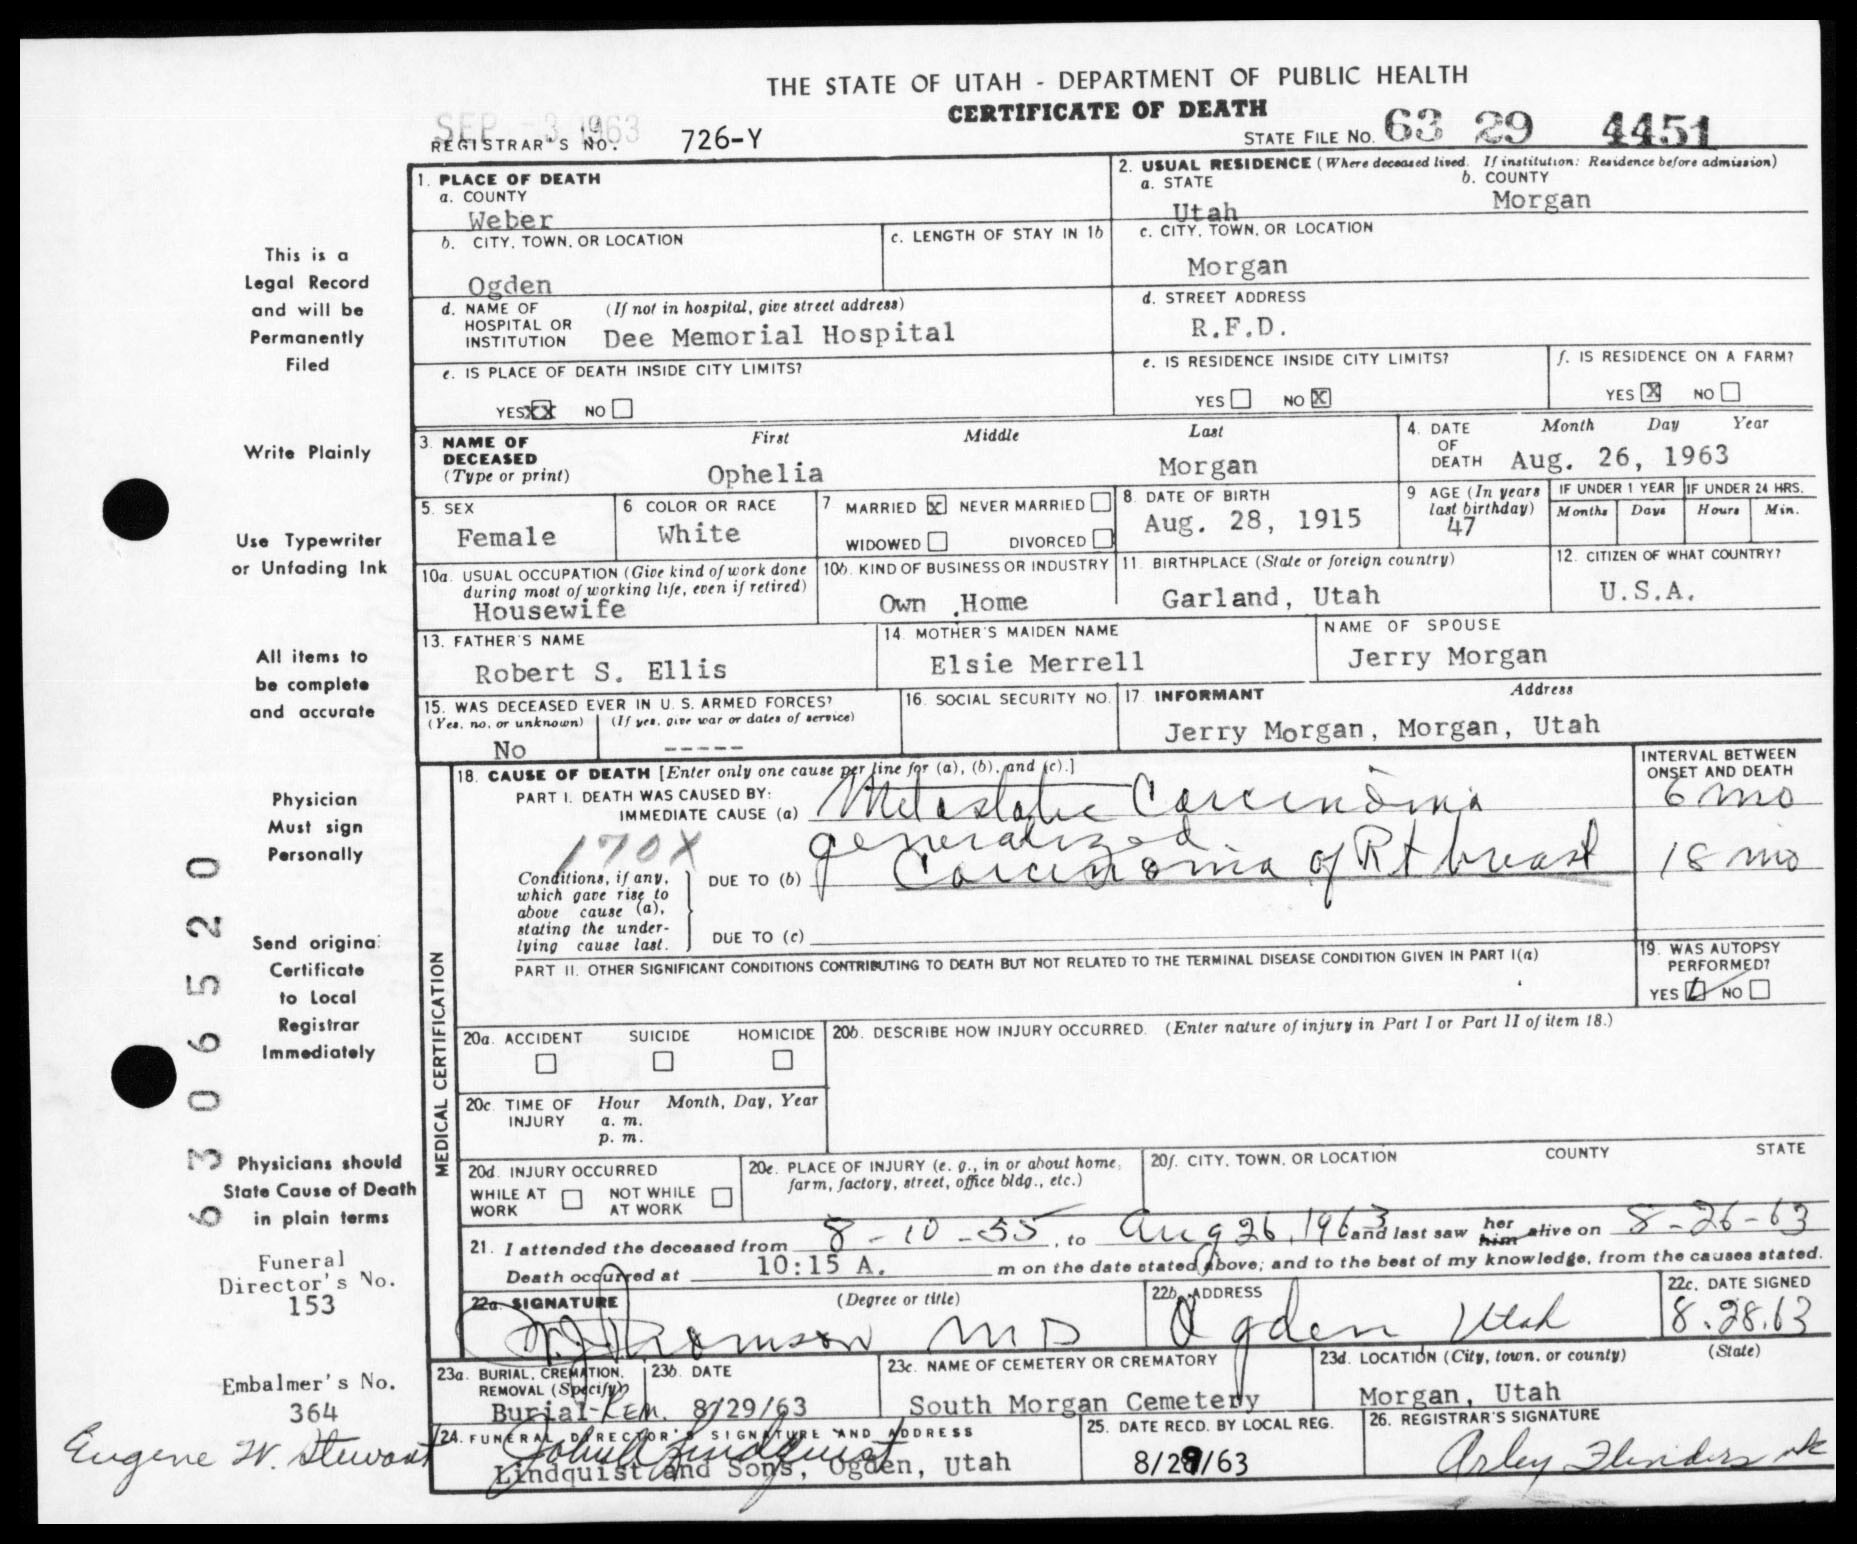 THE STATE OF UTAH - DEPARTMENT OF PUBLIC HEALTH
CERTIFICATE OF DEATH
SEP -3 1963
REGISTRAR'S NO. 726-Y
STATE FILE NO. 63 29 4451
1. PLACE OF DEATH
a. COUNTY
Weber
2. USUAL RESIDENCE (Where deceased lived. If institution: Residence before admission)
a. STATE b. COUNTY
Utah Morgan
b. CITY, TOWN, OR LOCATION
Ogden
c. LENGTH OF STAY IN 1b
c. CITY, TOWN, OR LOCATION
Morgan
d. NAME OF HOSPITAL OR INSTITUTION (If not in hospital, give street address)
Dee Memorial Hospital
d. STREET ADDRESS
R.F.D.
e. IS PLACE OF DEATH INSIDE CITY LIMITS?
YES XX NO
e. IS RESIDENCE INSIDE CITY LIMITS?
YES NO X
f. IS RESIDENCE ON A FARM?
YES X NO
3. NAME OF DECEASED (Type or print)
First Middle Last
Ophelia Morgan
4. DATE OF DEATH Month Day Year
Aug. 26, 1963
5. SEX
Female
6 COLOR OR RACE
White
7 MARRIED X NEVER MARRIED
WIDOWED DIVORCED
8. DATE OF BIRTH
Aug. 28, 1915
9 AGE (In years last birthday)
47
IF UNDER 1 YEAR
Months Days
IF UNDER 24 HRS.
Hours Min.
10a. USUAL OCCUPATION (Give kind of work done during most of working life, even if retired)
Housewife
10b. KIND OF BUSINESS OR INDUSTRY
Own Home
11. BIRTHPLACE (State or foreign country)
Garland, Utah
12. CITIZEN OF WHAT COUNTRY?
U.S.A.
13. FATHER'S NAME
Robert S. Ellis
14. MOTHER'S MAIDEN NAME
Elsie Merrell
NAME OF SPOUSE
Jerry Morgan
15. WAS DECEASED EVER IN U. S. ARMED FORCES?
(Yes, no, or unknown) (If yes, give war or dates of service)
No -----
16. SOCIAL SECURITY NO.
17. INFORMANT Address
Jerry Morgan, Morgan, Utah
MEDICAL CERTIFICATION
18. CAUSE OF DEATH [Enter only one cause per line for (a), (b), and (c).]
INTERVAL BETWEEN ONSET AND DEATH
PART I. DEATH WAS CAUSED BY:
IMMEDIATE CAUSE (a) Metastatic Carcinoma 6 mo
generalized
170X
Conditions, if any, which gave rise to above cause (a), stating the underlying cause last.
DUE TO (b) Carcinoma of Rt breast 18 mo
DUE TO (c)
PART II. OTHER SIGNIFICANT CONDITIONS CONTRIBUTING TO DEATH BUT NOT RELATED TO THE TERMINAL DISEASE CONDITION GIVEN IN PART I(a)
19. WAS AUTOPSY PERFORMED?
YES NO
20a. ACCIDENT SUICIDE HOMICIDE
20b. DESCRIBE HOW INJURY OCCURRED. (Enter nature of injury in Part I or Part II of item 18.)
20c. TIME OF INJURY Hour Month, Day, Year
a. m.
p. m.
20d. INJURY OCCURRED
WHILE AT WORK NOT WHILE AT WORK
20e. PLACE OF INJURY (e. g., in or about home, farm, factory, street, office bldg., etc.)
20f. CITY, TOWN, OR LOCATION COUNTY STATE
21. I attended the deceased from 8-10-55, to Aug 26, 1963 and last saw her him alive on 8-26-63
Death occurred at 10:15 A. m on the date stated above; and to the best of my knowledge, from the causes stated.
22a. SIGNATURE (Degree or title)
Thomson MD
22b. ADDRESS
Ogden Utah
22c. DATE SIGNED
8.28.63
23a. BURIAL, CREMATION, REMOVAL (Specify)
Burial-Rem.
23b. DATE
8/29/63
23c. NAME OF CEMETERY OR CREMATORY
South Morgan Cemetery
23d. LOCATION (City, town, or county) (State)
Morgan, Utah
24. FUNERAL DIRECTOR'S SIGNATURE AND ADDRESS
John Lindquist
Lindquist and Sons, Ogden, Utah
25. DATE RECD. BY LOCAL REG.
8/29/63
26. REGISTRAR'S SIGNATURE
Arley Flinders
This is a
Legal Record
and will be
Permanently
Filed
Write Plainly
Use Typewriter
or Unfading Ink
All items to
be complete
and accurate
Physician
Must sign
Personally
Send original
Certificate
to Local
Registrar
Immediately
Physicians should
State Cause of Death
in plain terms
Funeral
Director's No.
153
Embalmer's No.
364
Eugene W. Stewart
6306520